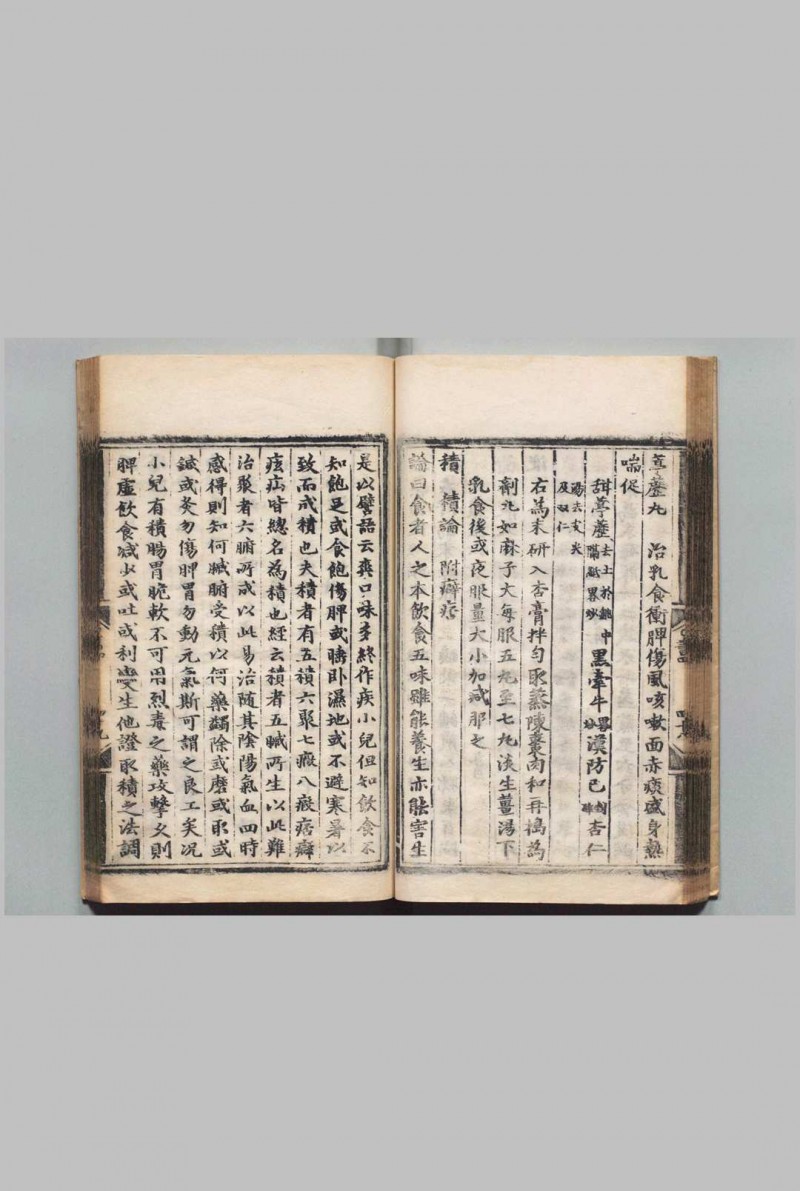 葶藶丸 治乳食衝脾傷風咳嗽面赤痰盛身熱
喘促
甜葶藶去土於銚中隔紙畧炒 黑牽牛畧炒 漢防已 杏仁
湯去皮尖及双仁
右為末研入杏膏拌匀取蒸陳棗肉和再搗為
劑丸如麻子大每服五丸至七丸淡生薑湯下
乳食後或夜服量大小加减服之
積 積論 附癖痞
論曰食者人之本飲食五味雖能養生亦能害生
是以譬語云爽口味多終作疾小兒但知飲食不
知飽足或食飽傷脾或睡卧濕地或不避寒暑以
致而成積也夫積者有五積六聚七癥八瘕痞癖
痃疝皆總名為積也經云積者五臟所生以此難
治聚者六腑所成以此易治随其陰陽氣血四時
感得則知何臟腑受積以何藥蠲除或磨或取或
鍼或灸勿傷脾胃勿動元氣斯可謂之良工矣况
小兒有積腸胃脆軟不可用烈毒之藥攻擊久則
脾虛飲食减少或吐或利變生他證取積之法調